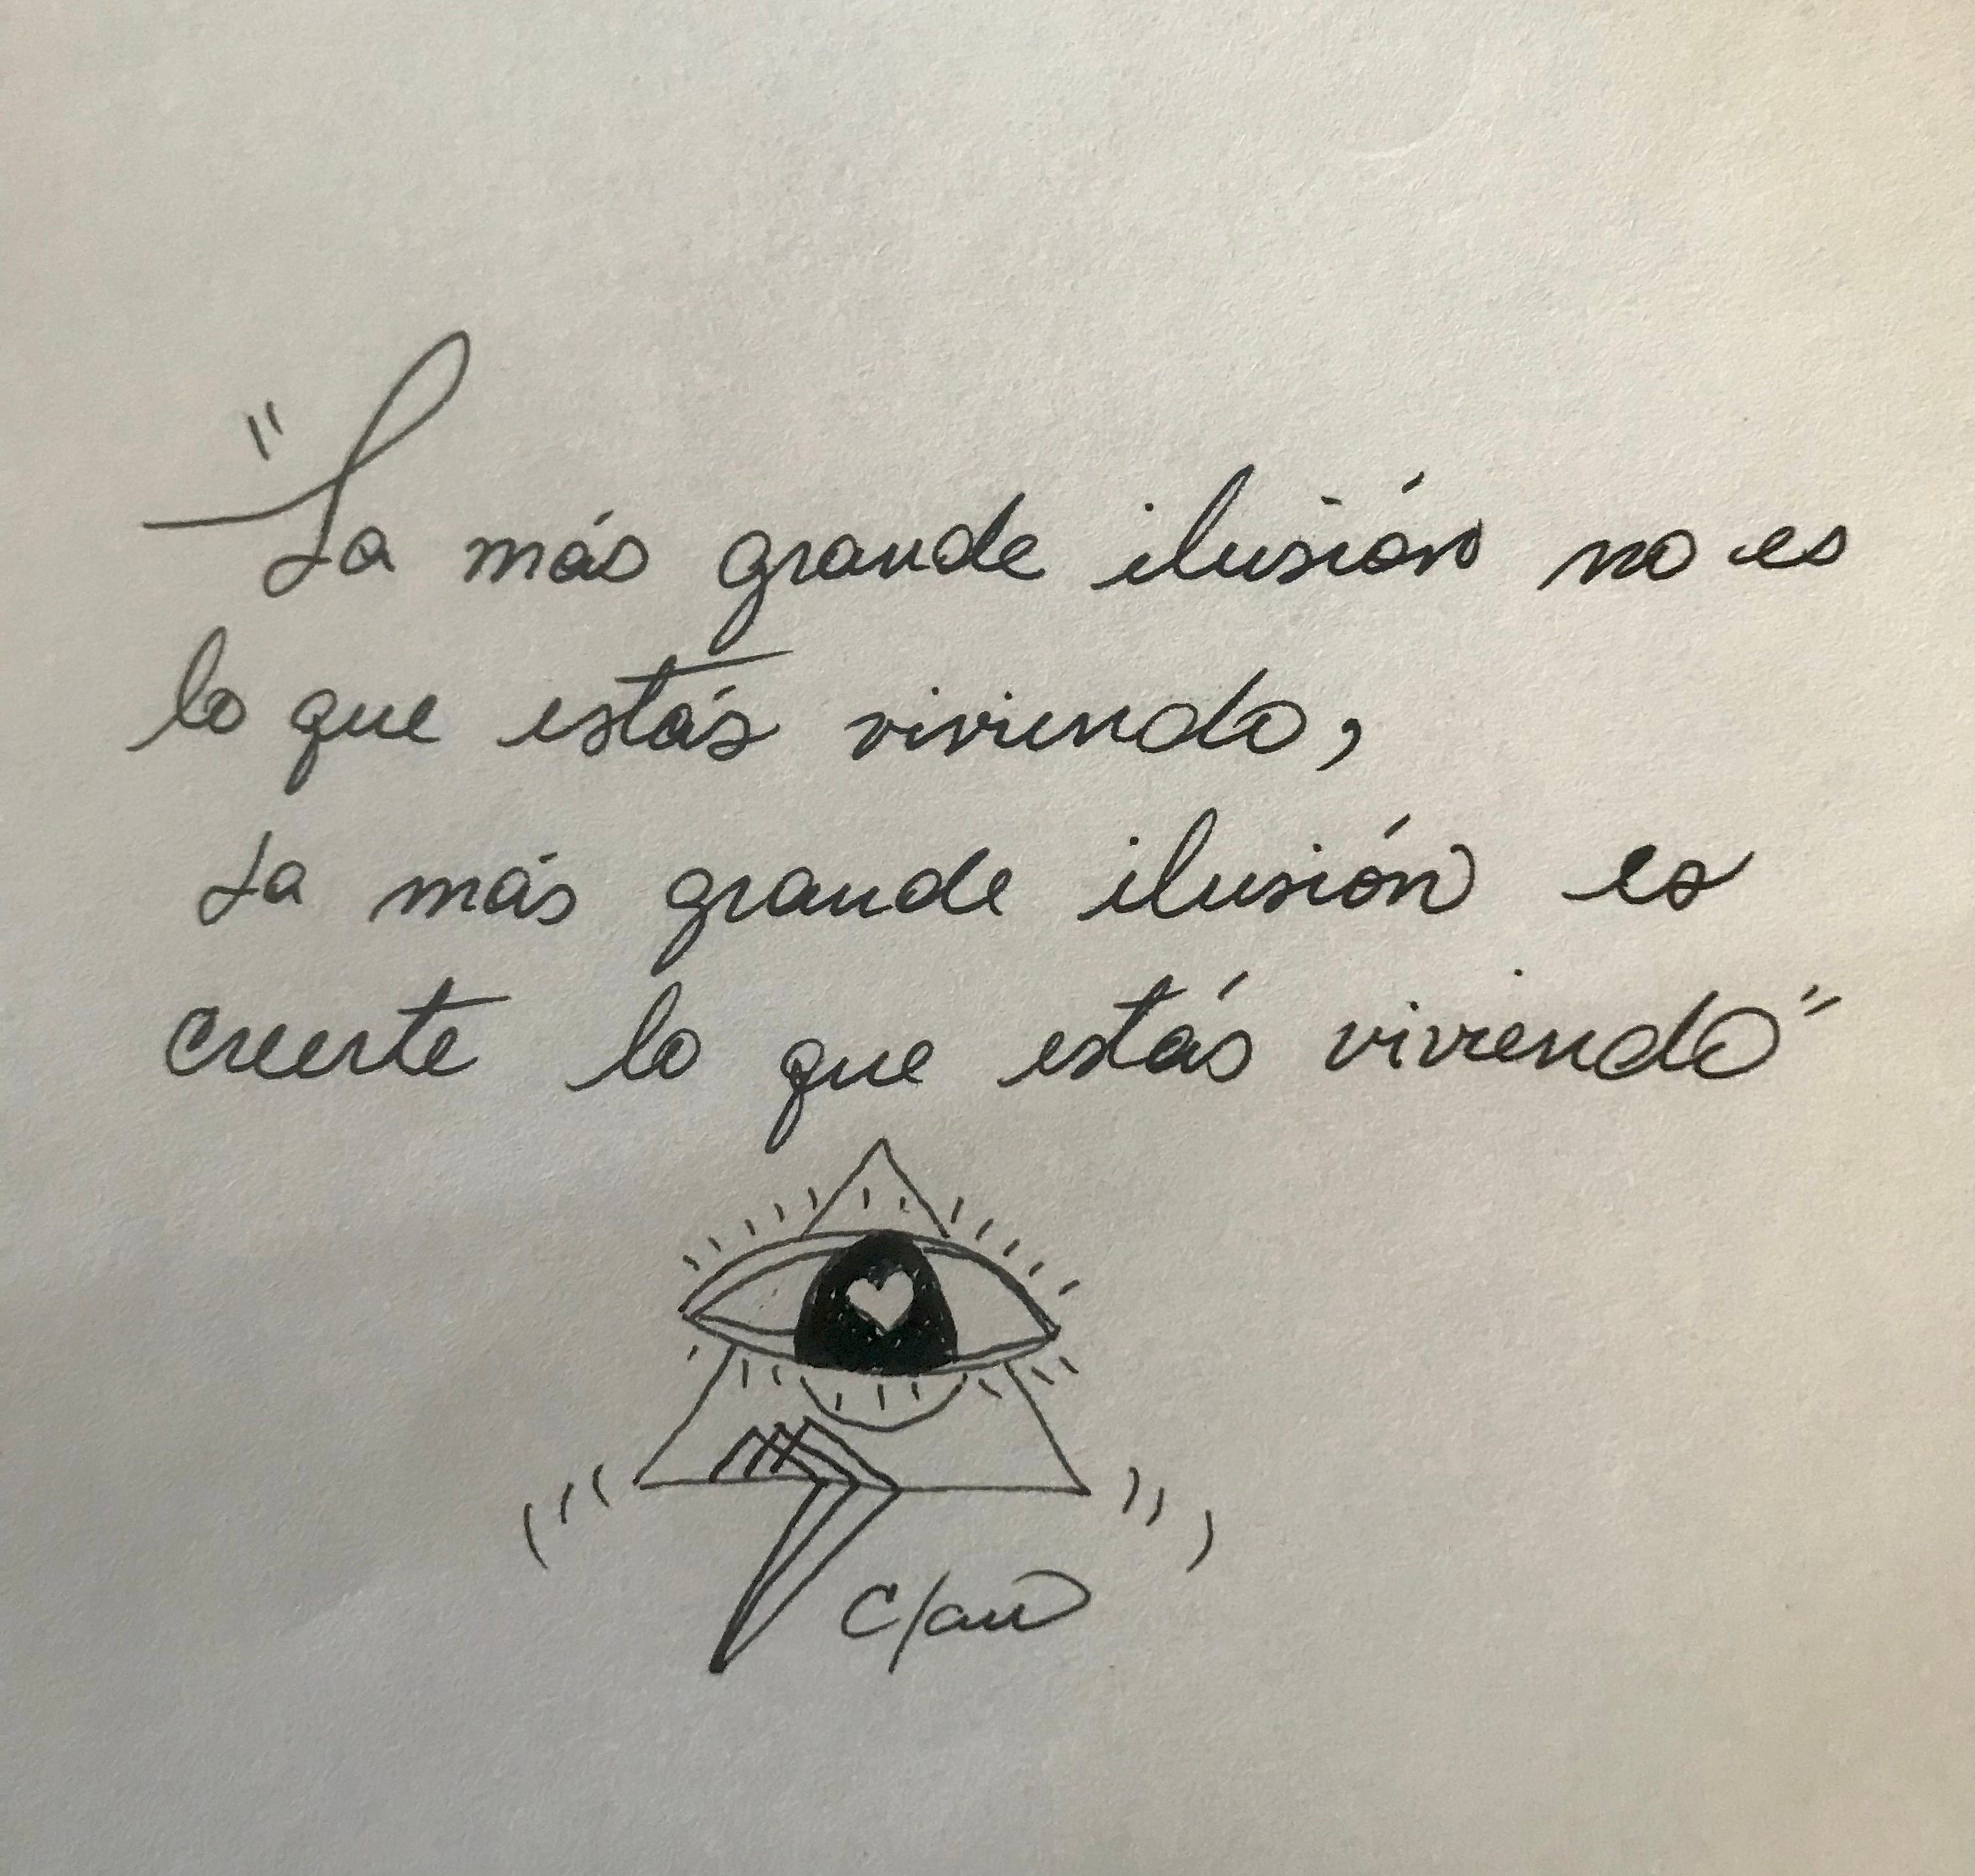 "La más grande ilusión no es
lo que estás viviendo,
La más grande ilusión es
creerte lo que estás viviendo"
Clau